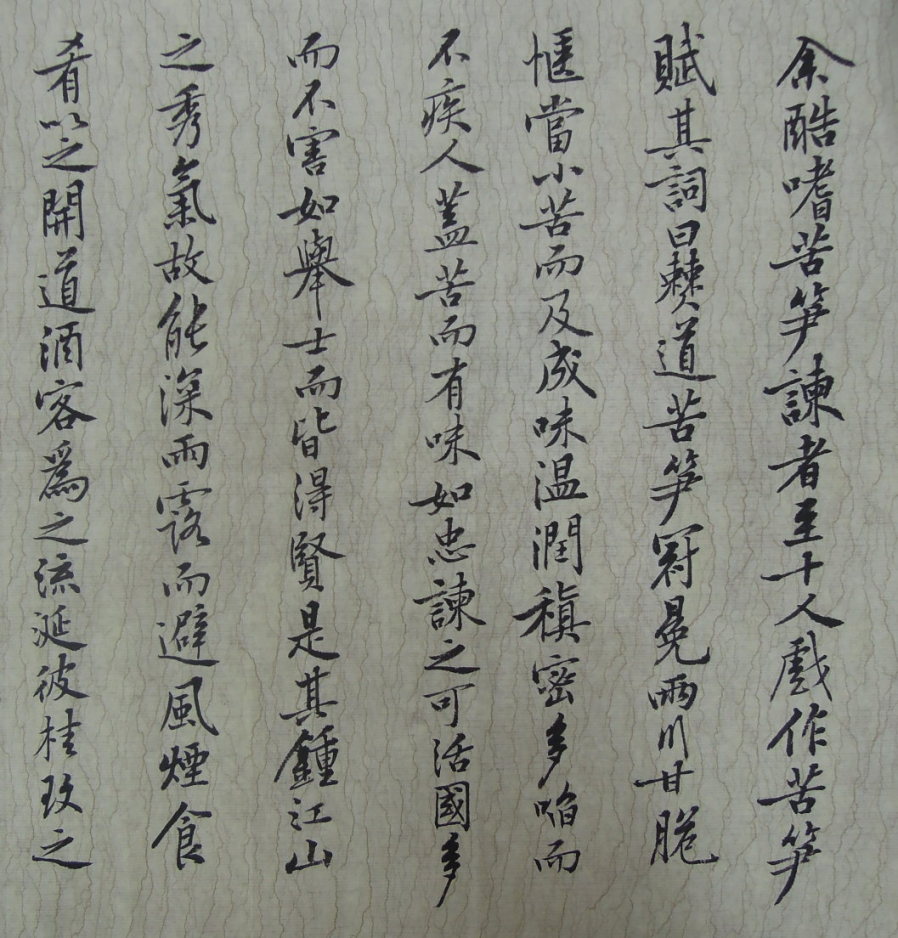 余酷嗜苦笋諫者至十人戲作苦笋
賦其詞曰僰道苦笋冠冕兩川甘脆
愜當小苦而及成味温潤稹密多啗而
不疾人蓋苦而有味如忠諫之可活國多
而不害如舉士而皆得賢是其鍾江山
之秀氣故能深雨露而避風煙食
肴以之開道酒客為之流涎彼桂玫之